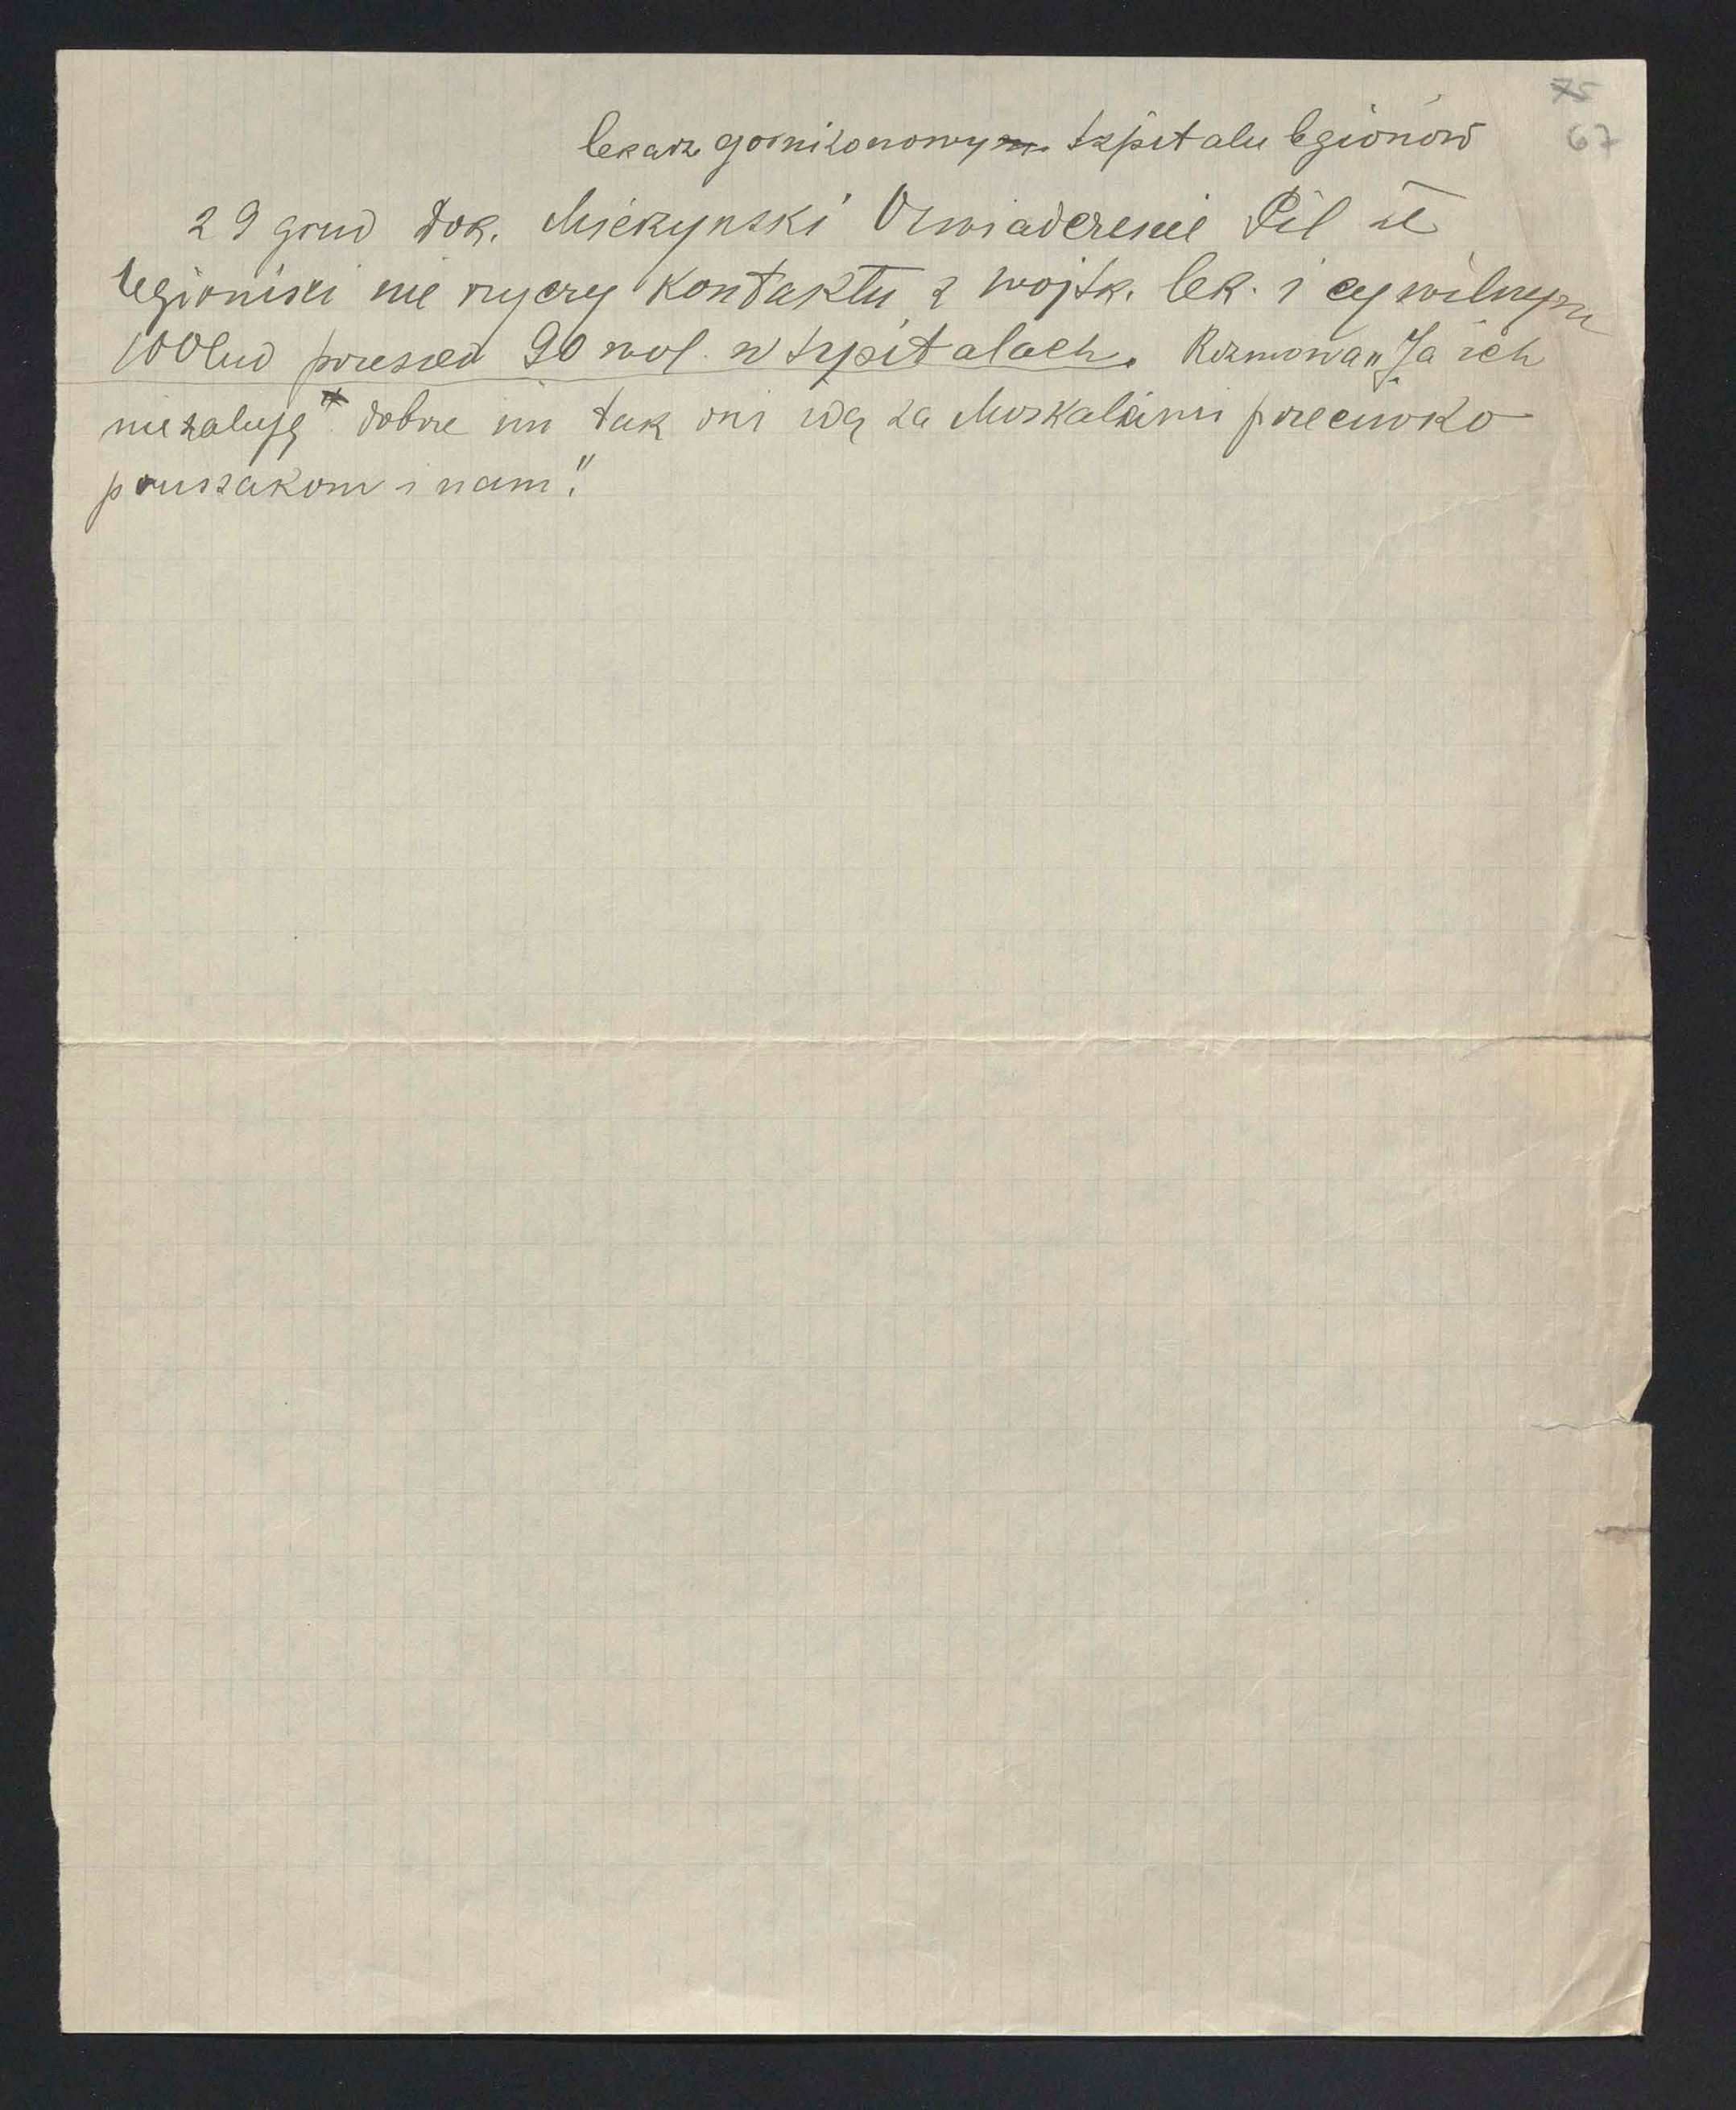 75
67
lekarz gornizonowym szpitalu legionów
29 grud Dok. Oswiadczenie Pil że
legioniści nie życzy kontaktu z wojsk. lek. i cywilnym
100 lud 90 wol. w szpitalach. Rozmowa „Ja ich
nie żaluję dobrze im tak oni idą za Moskalami przeciwko
prussakom i nam."